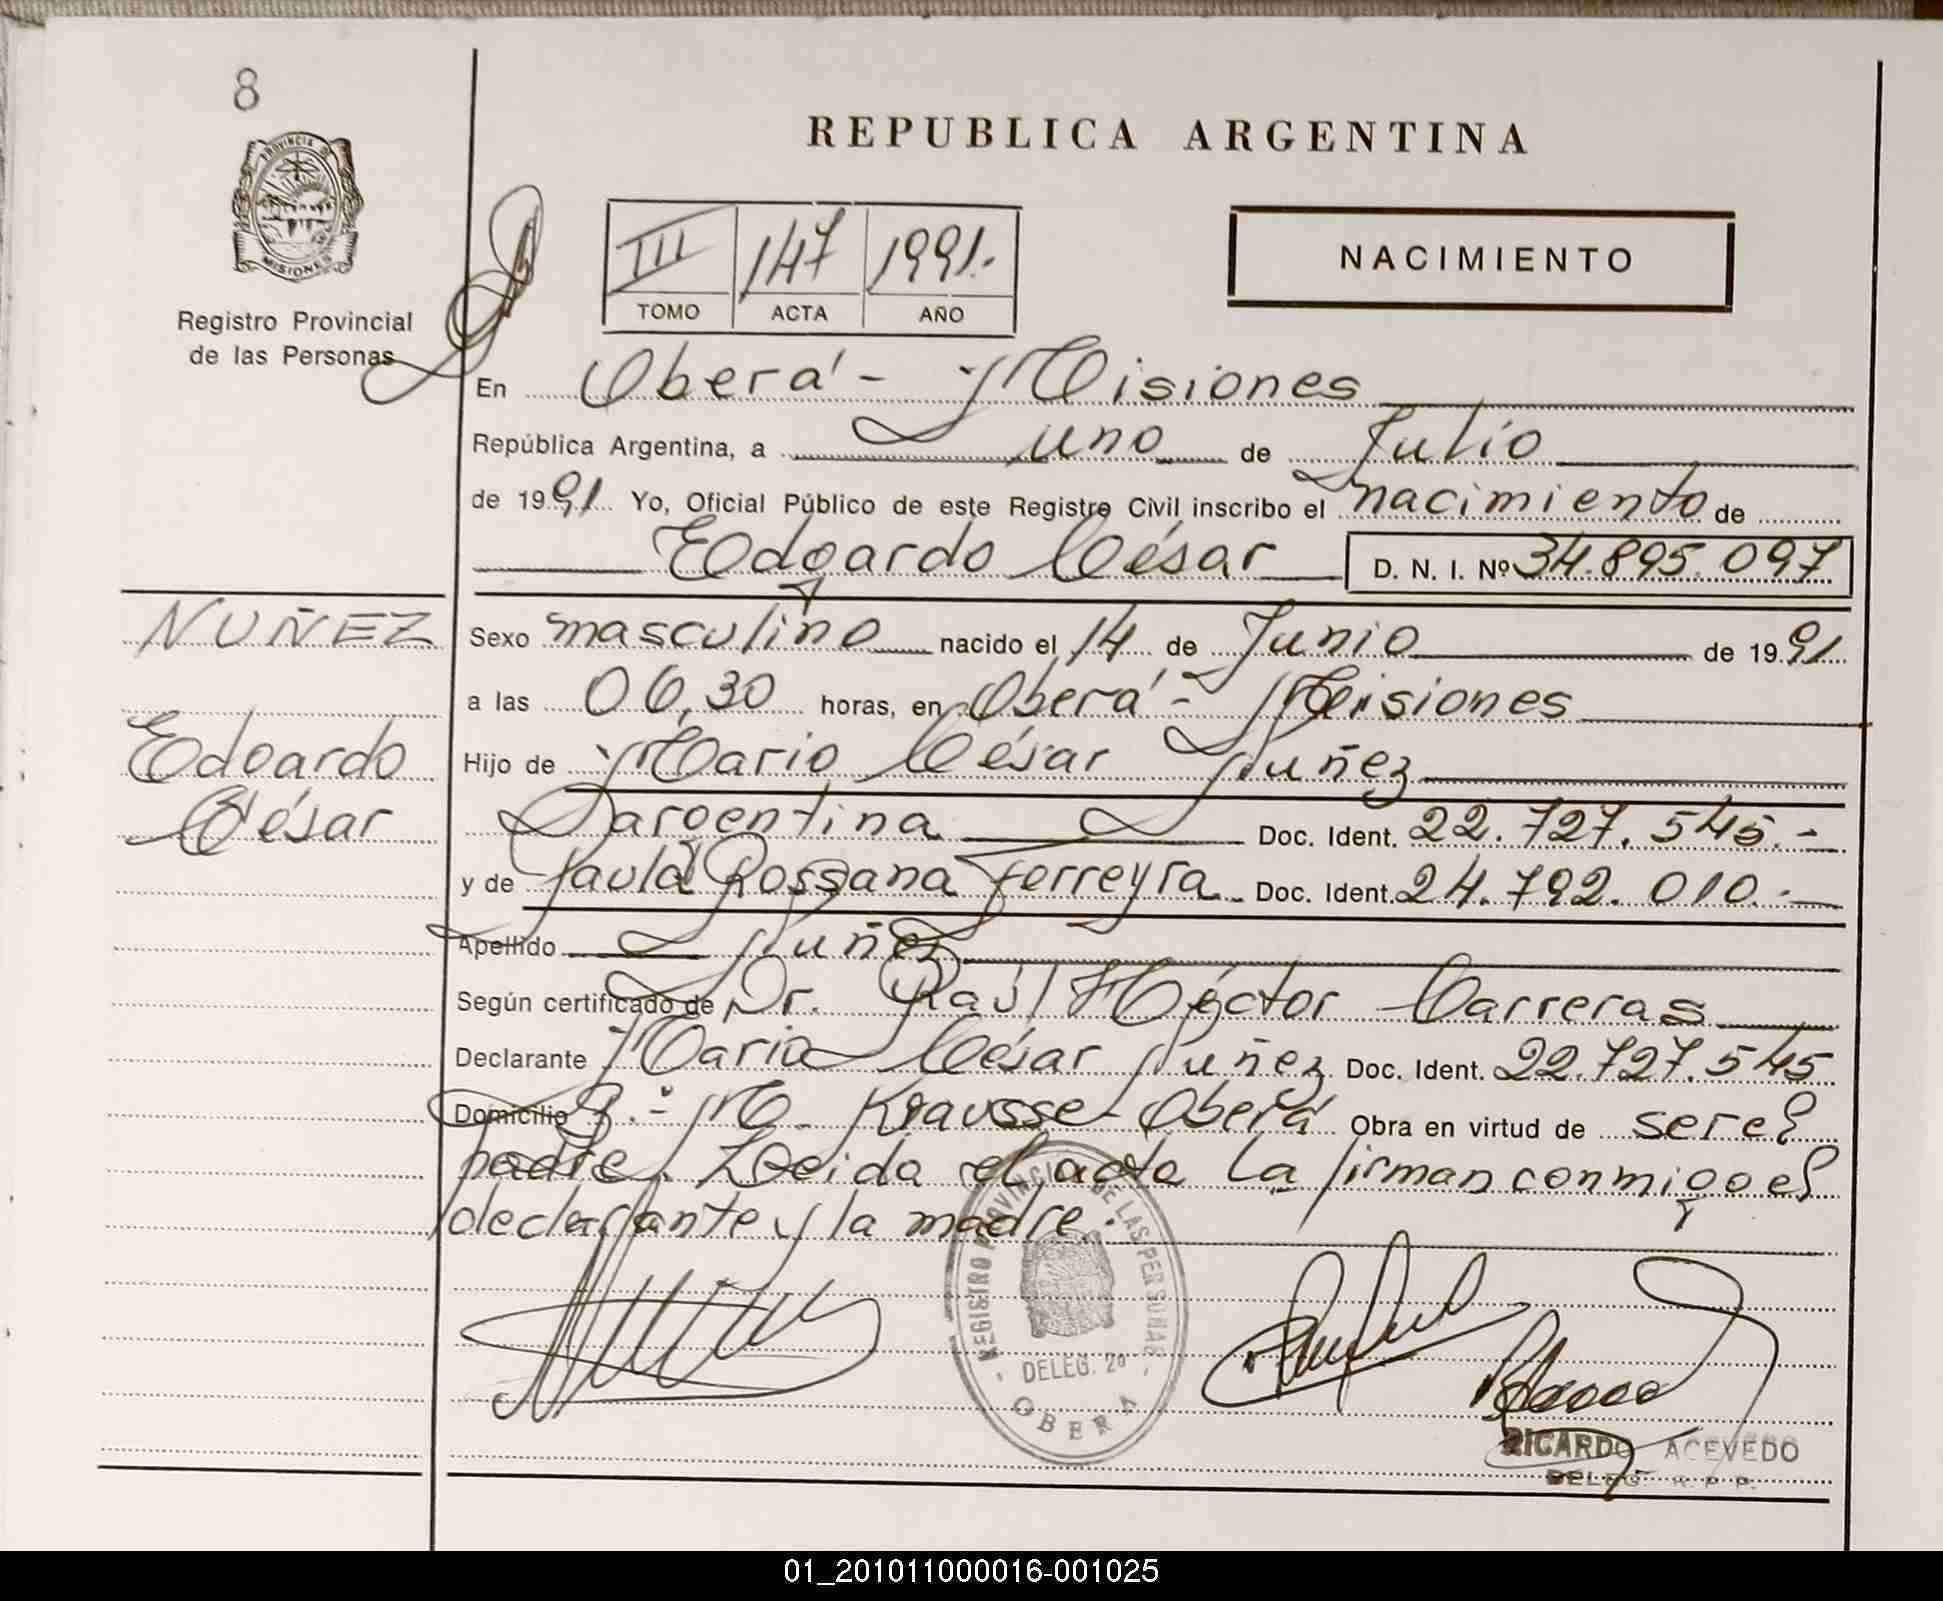 8
PROVINCIA D
MISIONES
Registro Provincial
de las Personas
REPUBLICA ARGENTINA
III 147 1991.
TOMO ACTA AÑO
NACIMIENTO
En Oberá - Misiones
República Argentina, a uno de Julio
de 1991 Yo, Oficial Público de este Registro Civil inscribo el nacimiento de
Edgardo César D. N. I. Nº 34.895.097
NUÑEZ
Edgardo
César
Sexo masculino nacido el 14 de Junio de 1991
a las 06,30 horas, en Oberá - Misiones
Hijo de Mario César Nuñez
argentina Doc. Ident. 22.727.545.-
y de Paula Rossana Ferreyra Doc. Ident. 24.792.010.-
Apellido Nuñez
Según certificado de Dr. Raúl Héctor Carreras
Declarante Mario César Nuñez Doc. Ident. 22.727.545
Domicilio B.- M. Krausse - Oberá Obra en virtud de ser el
padre. Leida el acta la firman conmigo el
declarante y la madre.
REGISTRO PROVINCIAL DE LAS PERSONAS
DELEG. 2ª
OBERA
RICARDO ACEVEDO
DELEG. R. P. P.
01_201011000016-001025